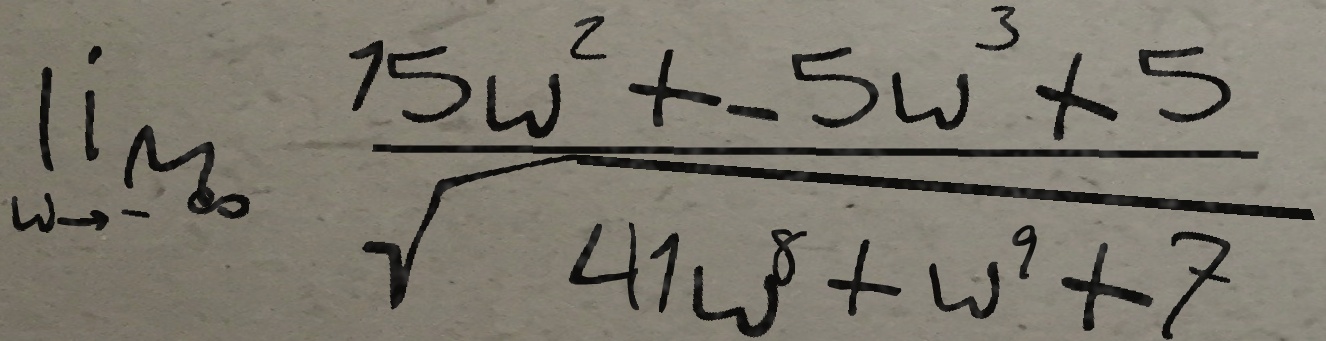 \lim_{w \to -\infty} \frac{15w^2 + -5w^3 + 5}{\sqrt{41w^8 + w^9 + 7}}